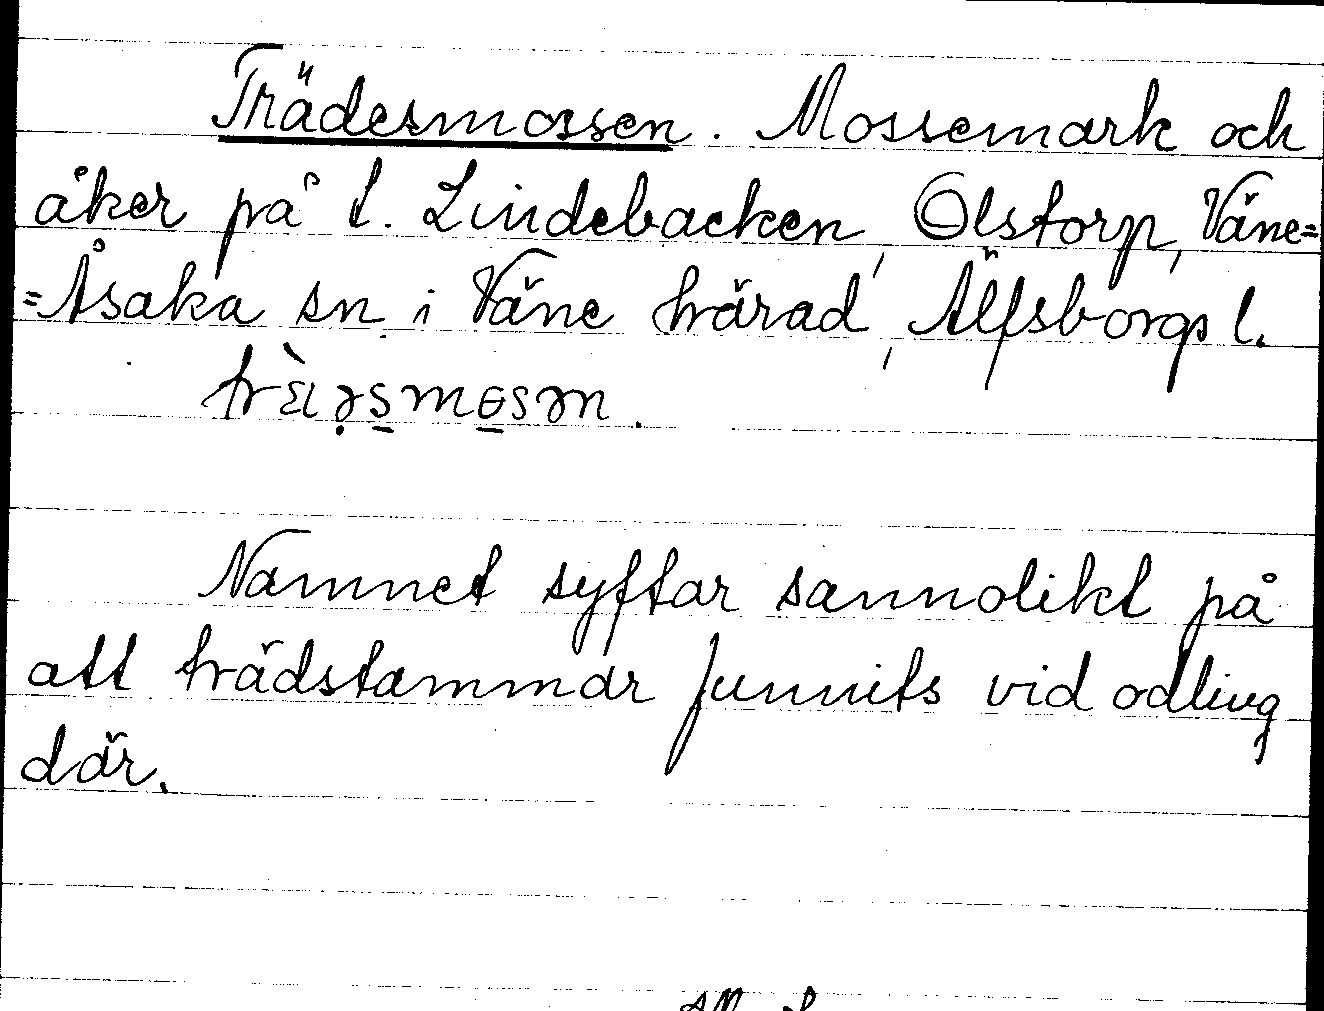 Trädesmossen. Mossemark och
åker på t. Lindebacken, Olstorp, Väne=
=Åsaka sn i Väne härad, Älfsborgs l.
Namnet syftar sannolikt på
att trädstammar funnits vid odling
där.